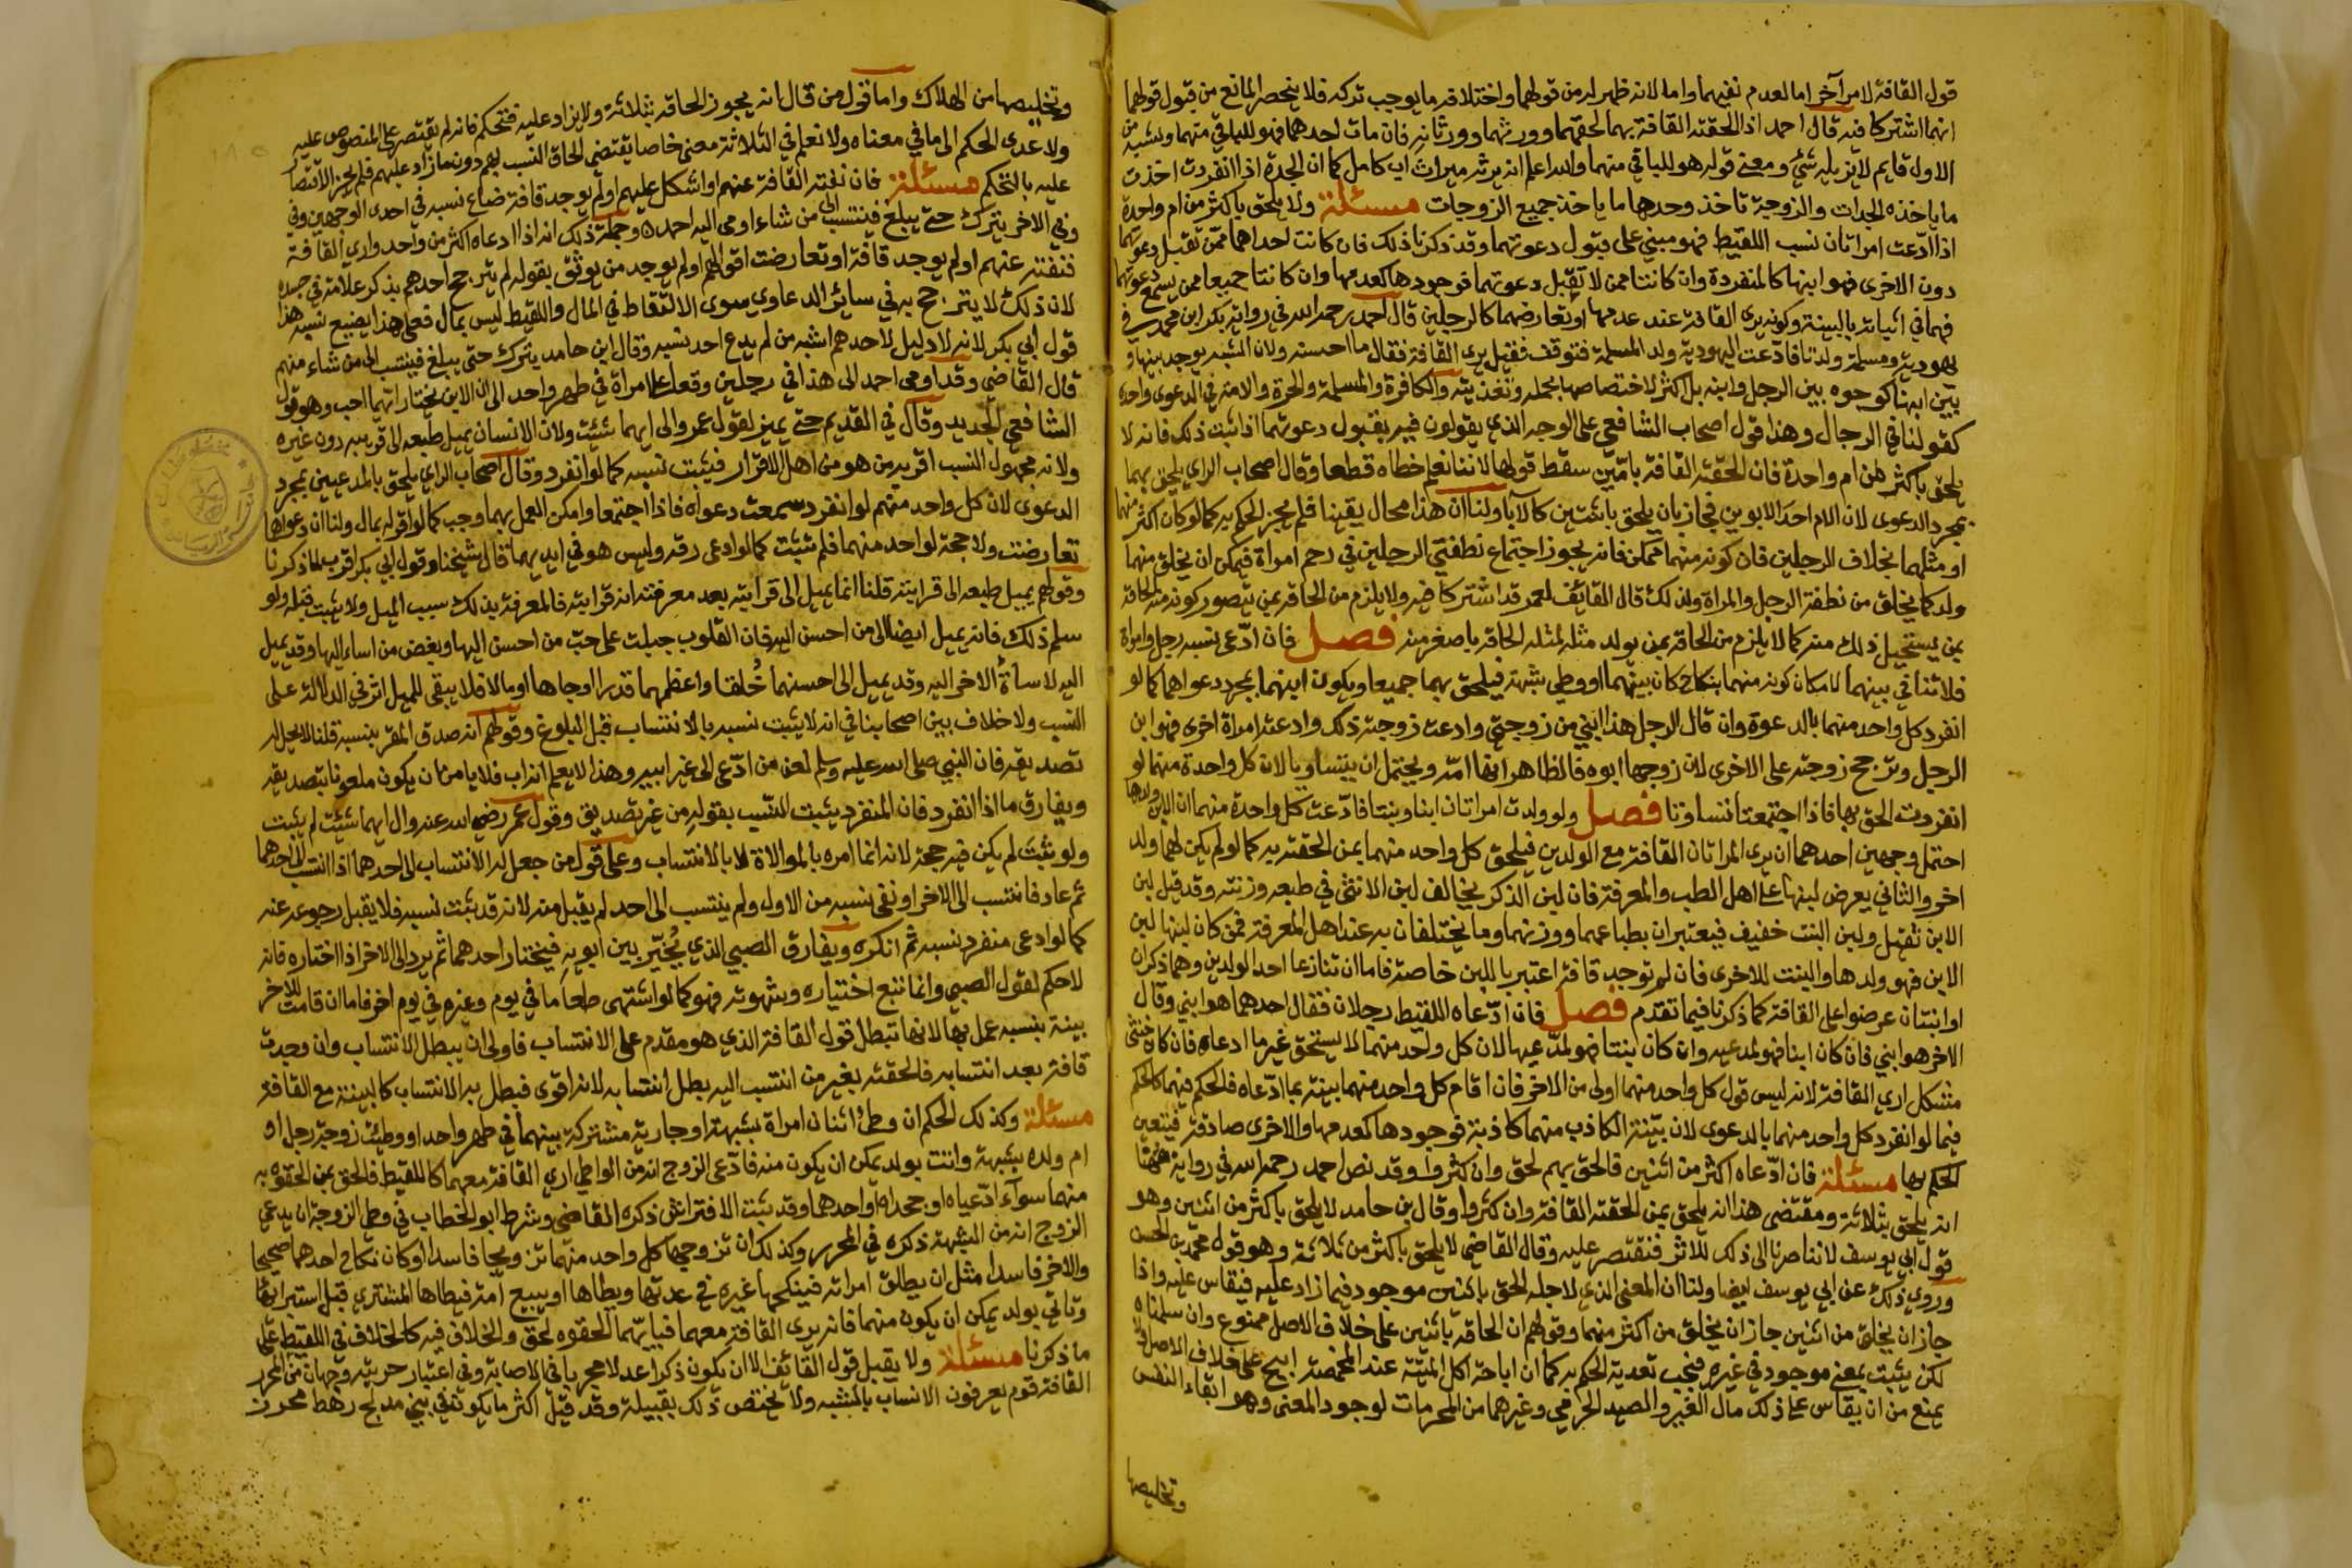 قول القافة لامر آخر اما لعدم نفيهما واما لانه ظهر له من قولهما واختلافه ما يوجب تركه فلا ينحصر المانع من قبول قولهما
انهما اشتركا فيه قال احمد اذا الحقته القافة بهما لحقهما وورثهما وورثانه فان مات احدهما فهو للباقي منهما ونسبه من
الاول قايم لا يزيله شئ ومعنى قوله هو للباقي منهما والله اعلم انه يرثه ميراث اب كامل كما ان الجدة اذا انفردت اخذت
ما ياخذه الجدات والزوجة تاخذ وحدها ما ياخذ جميع الزوجات مسئلة ولا يلحق باكثر من ام واحدة
اذا ادعت امراتان نسب اللقيط فهو مبني على قبول دعوتهما وقد ذكرنا ذلك فان كانت احداهما ممن تقبل دعوتها
دون الاخرى فهو ابنها كالمنفردة وان كانتا ممن لا تقبل دعوتهما فوجودها كعدمها وان كانتا جميعا ممن يسمع دعوتهما
فهما في اثباته بالبينة وكونه يرى القافة عند عدمها او تعارضهما كالرجلين قال احمد رحمه الله في رواية بكر ابن محمد في
يهودية ومسلمة ولدتا فادعت اليهودية ولد المسلمة فتوقف فقيل يرى القافة فقال ما احسنه ولان الشبه يوجد بينها و
بين ابنها كوجوده بين الرجل وابنه بل اكثر لاختصاصها بحمله وتغذيته والكافرة والمسلمة والحرة والامة في الدعوى واحدة
كقولنا في الرجال وهذا قول اصحاب الشافعي على الوجه الذي يقولون فيه بقبول دعوتهما اذا ثبت ذلك فانه لا
يلحق باكثر من ام واحدة فان الحقته القافة بامين سقط قولها لاننا نعلم خطاه قطعا وقال اصحاب الراي يلحق بهما
بمجرد الدعوى لان الام احد الابوين فجاز ان يلحق باثنتين كالآباء ولنا ان هذا محال يقينا فلم يجز الحكم به كما لو كان اكثر منهما
او مثلهما بخلاف الرجلين فان كونه منهما ممكن فانه يجوز اجتماع نطفتي الرجلين في رحم امراة فيمكن ان يخلق منهما
ولد كما يخلق من نطفة الرجل والمراة ولذلك قال القائف لعمر قد اشتركا فيه ولا يلزم من الحاقه بمن يتصور كونه منه الحاقه
بمن يستحيل ذلك منه كما لا يلزم من الحاقه بمن يولد مثله لمثله الحاقه باصغر منه فصل فان ادعى نسبه رجل وامراة
فلا تنافي بينهما لامكان كونه منهما بنكاح كان بينهما او وطي شبهة فيلحق بهما جميعا ويكون ابنهما بمجرد دعواهما كما لو
انفرد كل واحد منهما بالدعوة وان قال الرجل هذا ابني من زوجتي وادعت زوجته ذلك وادعته امراة اخرى فهو ابن
الرجل وترجح زوجته على الاخرى لان زوجها ابوه فالظاهر انها امه ويحتمل ان يتساويا لان كل واحدة منهما لو
انفردت الحق بها فاذا اجتمعتا تساوتا فصل ولو ولدت امراتان ابنا وبنتا فادعت كل واحدة منهما ان الابن ولدها
احتمل وجهين احدهما ان يرى المراتان القافة مع الولدين فيلحق كل واحد منهما بمن الحقته به كما لو لم يكن لهما ولد
اخر والثاني يعرض لبنهما على اهل الطب والمعرفة فان لبن الذكر يخالف لبن الانثى في طبعه وزنته وقد قيل لبن
الابن ثقيل ولبن البنت خفيف فيعتبران بطباعهما ووزنهما وما يختلفان به عند اهل المعرفة فمن كان لبنها لبن
الابن فهو ولدها والبنت للاخرى فان لم توجد قافة اعتبر باللبن خاصة فاما ان تنازعا احد الولدين وهما ذكران
او ابنتان عرضوا على القافة كما ذكرنا فيما تقدم فصل فان ادعاه اللقيط رجلان فقال احدهما هو ابني وقال
الاخر هو ابنتي فان كان ابنا فهو لمدعيه وان كان بنتا فهو لمدعيها لان كل واحد منهما لا يستحق غير ما ادعاه فان كان خنثى
مشكل اري القافة لانه ليس قول كل واحد منهما اولى من الاخر فان اقام كل واحد منهما بينة بما ادعاه فالحكم فيهما كالحكم
فيما لو انفرد كل واحد منهما بالدعوى لان بينة الكاذب منهما كاذبة فوجودها كعدمها والاخرى صادقة فيتعين
الحكم بها مسئلة فان ادعاه اكثر من اثنين فالحق بهم لحق وان كثروا وقد نص احمد رحمه الله في رواية مهنا
انه يلحق بثلاثة ومقتضى هذا انه يلحق بمن الحقته القافة وان كثروا وقال بن حامد لا يلحق باكثر من اثنين وهو
قول ابي يوسف لاننا صرنا الى ذلك للاثر فنقتصر عليه وقال القاضي لا يلحق باكثر من ثلاثة وهو قول محمد بن الحسن
وروي ذلك عن ابي يوسف ايضا ولنا ان المعنى الذي لاجله لحق باثنين موجود فيما زاد عليه فنقاس عليه واذا
جاز ان يخلق من اثنين جاز ان يخلق من اكثر منهما وقولهم ان الحاقه باثنين على خلاف الاصل ممنوع وان سلمناه
لكن يثبت بمعنى موجود في غيره فيجب تعدية الحكم به كما ان اباحة اكل الميتة عند المخمصة ابيح على خلاف الاصل ولا
يمنع من ان يقاس على ذلك مال الغير والصيد الحرامي وغيرهما من المحرمات لوجود المعنى وهو ابقاء النفس
وتخليصها
وتخليصها من الهلاك واما قول من قال انه يجوز الحاقه بثلاثة ولا يزاد عليه فتحكم فانه لم يقتصر على المنصوص عليه
ولا عدى الحكم الى ما في معناه ولا نعلم في الثلاثة معنى خاصا يقتضي الحاق النسب بهم دون ما زاد عليهم فلم يجز الاقتصار
عليه بالتحكم مسئلة فان نفته القافة عنهم او اشكل عليهم او لم يوجد قافة ضاع نسبه في احدى الوجهين وفي
وفي الاخر يترك حتى يبلغ فينتسب الى من شاء اومى اليه احمد وجملة ذلك انه اذا ادعاه اكثر من واحد واري القافة
فنفته عنهم او لم يوجد قافة او تعارضت اقوالهم او لم يوجد من يوثق بقوله لم يترجح احدهم بذكر علامة في جسده
لان ذلك لا يترجح به في سائر الدعاوي سوى الالتقاط في المال واللقيط ليس بمال فعلى هذا يضيع نسبه هذا
قول ابي بكر لانه لا دليل لاحدهم اشبه من لم يدع احد نسبه وقال ابن حامد يترك حتى يبلغ فينتسب الى من شاء منهم
قال القاضي وقد اومى احمد الى هذا في رجلين وقعا على امراة في طهر واحد الى ان الابن يختار ايهما احب وهو قول
الشافعي الجديد وقال في القديم حتى يميز لقول عمر والى ايهما شئت ولان الانسان يميل طبعه الى قريبه دون غيره
ولانه مجهول النسب اقر به من هو من اهل الاقرار فيثبت نسبه كما لو انفرد وقال اصحاب الراي يلحق بالمدعيين بمجرد
الدعوى لان كل واحد منهم لو انفرد سمعت دعواه فاذا اجتمعا وامكن العمل بهما وجب كما لو اقر له بمال ولنا ان دعواهما
تعارضت ولا حجة لواحد منهما فلم تثبت كما لو ادعى رقه وليس هو في ايديهما قال شيخنا وقول ابي بكر اقرب لما ذكرنا
وقولهم يميل طبعه الى قرابته قلنا انما يميل الى قرابته بعد معرفته انه قرابته فالمعرفة بذلك سبب الميل ولا يثبت قبله ولو
سلم ذلك فانه يميل ايضا الى من احسن اليه فان القلوب جبلت على حب من احسن اليها وبغض من اساء اليها وقد يميل
اليه لاساءة الاخر اليه وقد يميل الى احسنهما خلقا واعظمهما قدرا او جاها او مالا فلا يبقى للميل اثر في الدلالة على
النسب ولا خلاف بين اصحابنا في انه لا يثبت نسبه بالانتساب قبل البلوغ وقولهم انه صدق المقر بنسبه قلنا لا يحل له
تصديقه فان النبي صلى الله عليه وسلم لعن من ادعى الى غير ابيه وهذا لا يعلم انه اب فلا يامن ان يكون ملعونا بتصديقه
ويفارق ما اذا انفرد فان المنفرد يثبت النسب بقوله من غير تصديق وقول عمر رضي الله عنه وال ايهما شئت لم يثبت
ولو يثبت لم يكن فيه حجة لانه انما امره بالموالاة لا بالانتساب وعلى قول من جعل له الانتساب الى احدهما اذا انتسب الى احدهما
ثم عاد فانتسب الى الاخر او نفى نسبه من الاول ولم ينتسب الى احد لم يقبل منه لانه قد يثبت نسبه فلا يقبل رجوعه عنه
كما لو ادعى منفرد نسبه ثم انكره ويفارق الصبي الذي يخير بين ابويه فيختار احدهما ثم يرد الى الاخر اذا اختاره فانه
لا حكم لقول الصبي وانما نتبع اختياره وشهوته فهو كما لو اشتهى طعاما في يوم وغيره في يوم اخر فاما ان قامت للاخر
بينة بنسبه عمل بها لانها تبطل قول القافة الذي هو مقدم على الانتساب فاولى ان يبطل الانتساب وان وجدت
قافة بعد انتسابه فالحقته بغير من انتسب اليه بطل انتسابه لانه اقوى فبطل به الانتساب كالبينة مع القافة
مسئلة وكذلك الحكم ان وطئ اثنان امراة بشبهة او جارية مشتركة بينهما في طهر واحد او وطئت زوجة رجل او
ام ولده بشبهة واتت بولد يمكن ان يكون منه فادعى الزوج انه من الواطي اري القافة معهما كاللقيط فالحق بمن الحقوه به
منهما سواء ادعياه او جحداه او احدهما وقد يثبت الافتراش ذكره القاضي وشرط ابو الخطاب في وطي الزوجة ان يدعي
الزوج انه من الشبهة ذكره في المحرر وكذلك ان تزوجها كل واحد منهما تزويجا فاسدا او كان نكاح احدهما صحيحا
والاخر فاسدا مثل ان يطلق امراته فينكحها غيره في عدتها ويطاها او يبيع امة فيطاها المشتري قبل استبرائها
وتاتي بولد يمكن ان يكون منهما فانه يرى القافة معهما فبايهما الحقوه لحق والخلاف فيه كالخلاف في اللقيط على
ما ذكرنا مسئلة ولا يقبل قول القائف الا ان يكون ذكرا عدلا مجربا في الاصابة وفي اعتبار حريته وجهان من المحرر
القافة قوم يعرفون الانساب بالشبه ولا يختص ذلك بقبيلة وقد قيل اكثر ما يكون في بني مدلج رهط مجزز